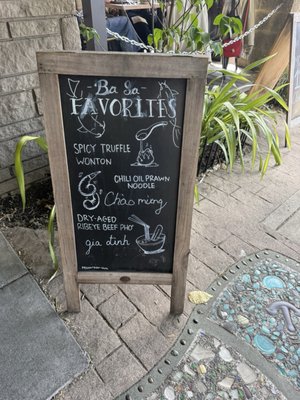 Ba Sa
FAVORITES
SPICY TRUFFLE
WONTON
CHILI OIL PRAWN
NOODLE
Chào mừng
DRY-AGED
RIBEYE BEEF PHO
gia đình